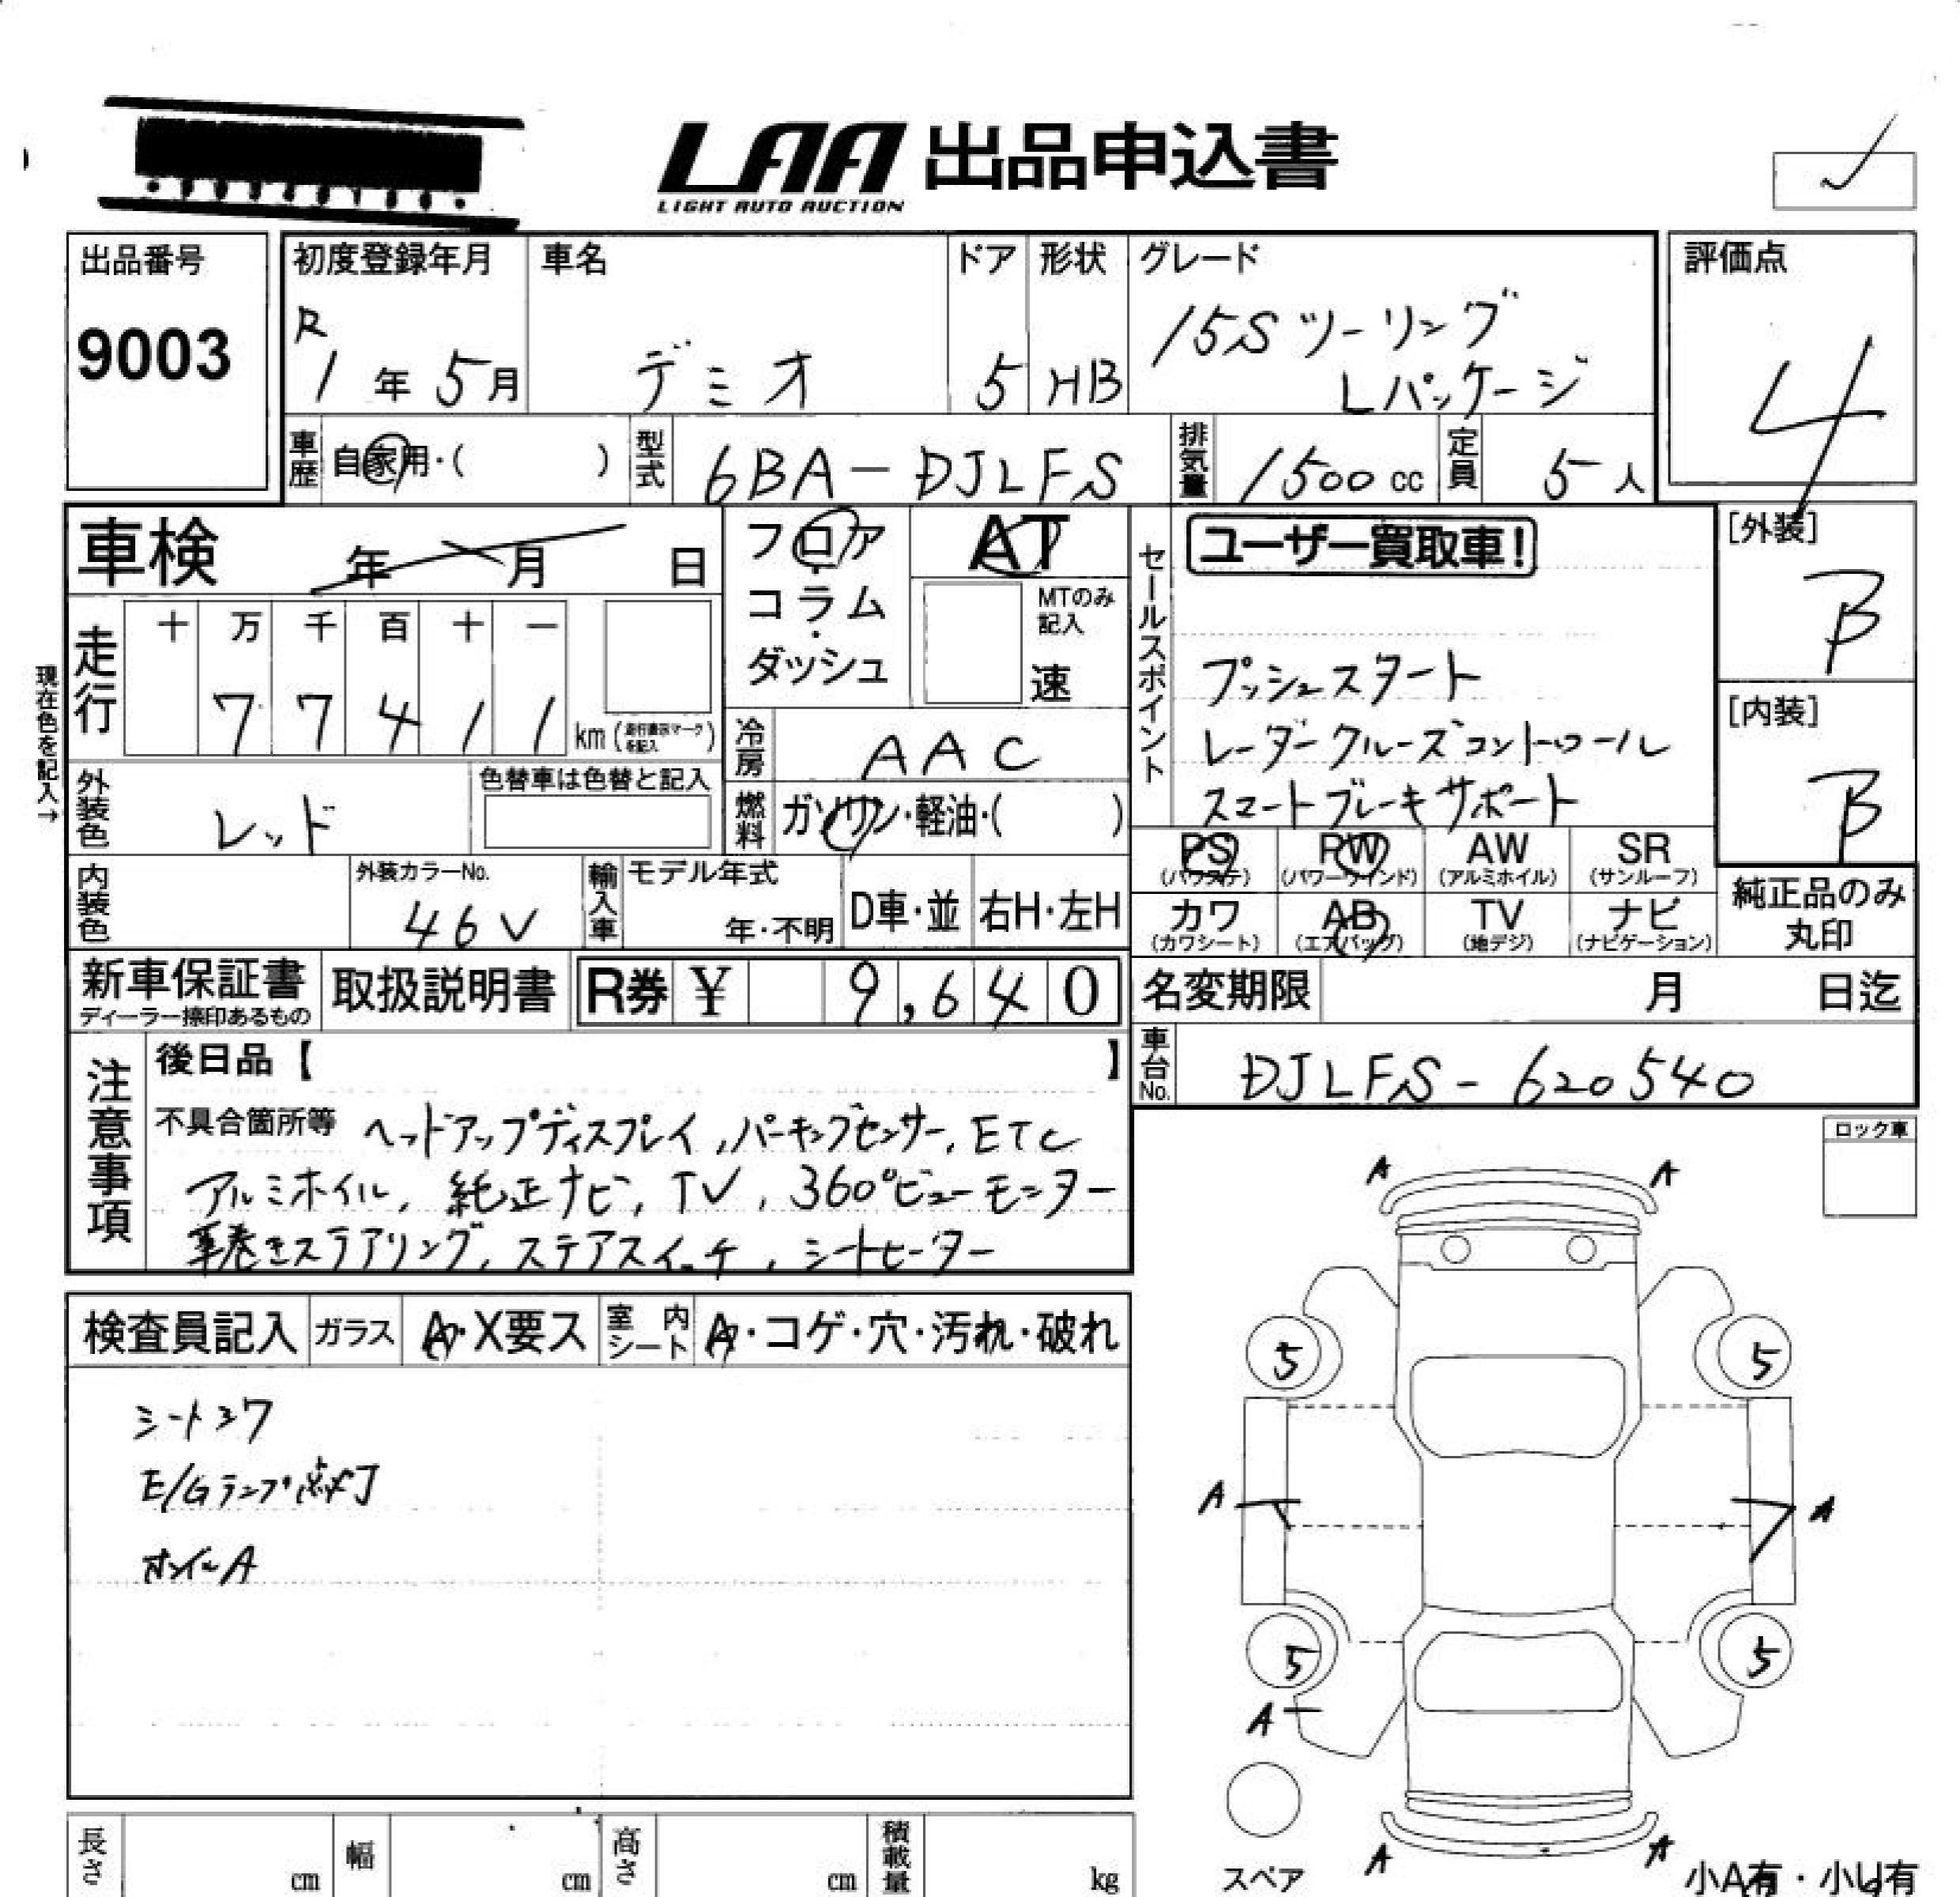 LAA 出品申込書
LIGHT AUTO AUCTION
出品番号
9003
初度登録年月
R
1年 5月
車名
デミオ
ドア
5
形状
HB
グレード
15Sツーリング
Lパッケージ
評価点
4
車歴
自家用・( )
型式
6BA-DJLFS
排気量
1500 cc
定員
5人
車検 年 月 日
フロア・コラム・ダッシュ
AT
MTのみ記入
速
セールスポイント
ユーザー買取車!
プッシュスタート
レーダークルーズコントロール
スマートブレーキサポート
[外装]
B
[内装]
B
現在色を記入→
走行
十 万 千 百 十 一
7 7 4 1 1
km (走行表示マークを記入)
冷房
AAC
外装色
レッド
色替車は色替と記入
燃料
ガソリン・軽油・( )
PS
(パワステ)
PW
(パワーウインド)
AW
(アルミホイル)
SR
(サンルーフ)
内装色
外装カラーNo.
46V
輸入車
モデル年式
年・不明
D車・並
右H・左H
カワ
(カワシート)
AB
(エアバッグ)
TV
(地デジ)
ナビ
(ナビゲーション)
純正品のみ
丸印
新車保証書
ディーラー捺印あるもの
取扱説明書
R券 ¥ 9,640
名変期限 月 日迄
車台No.
DJLFS-620540
注意事項
後日品【 】
不具合箇所等 ヘッドアップディスプレイ,パーキングセンサー,ETC
アルミホイル, 純正ナビ, TV, 360°ビューモニター
革巻きステアリング, ステアスイッチ, シートヒーター
ロック車
検査員記入
ガラス
A・X要ス
室内シート
A・コゲ・穴・汚れ・破れ
E/Gランプ点灯
A A
5 5
A A
5 5
A
A A
スペア
小A有・小U有
長さ cm
幅 cm
高さ cm
積載量 kg